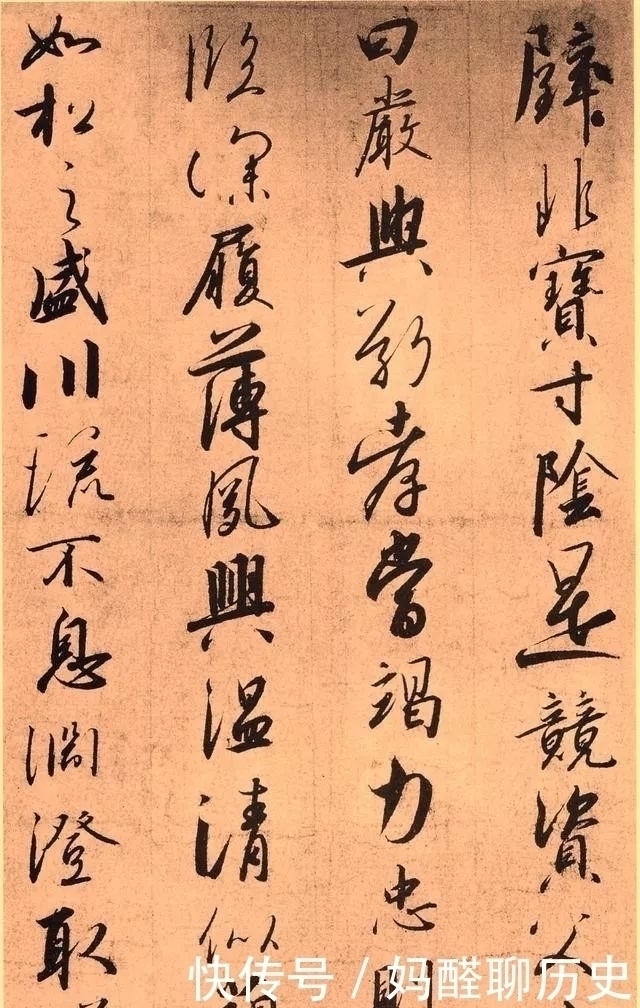 璧非寶寸陰是競資父
曰嚴與敬孝當竭力忠則
臨深履薄夙興温清似
如松之盛川流不息淵澄取
快传号/妈醛聊历史